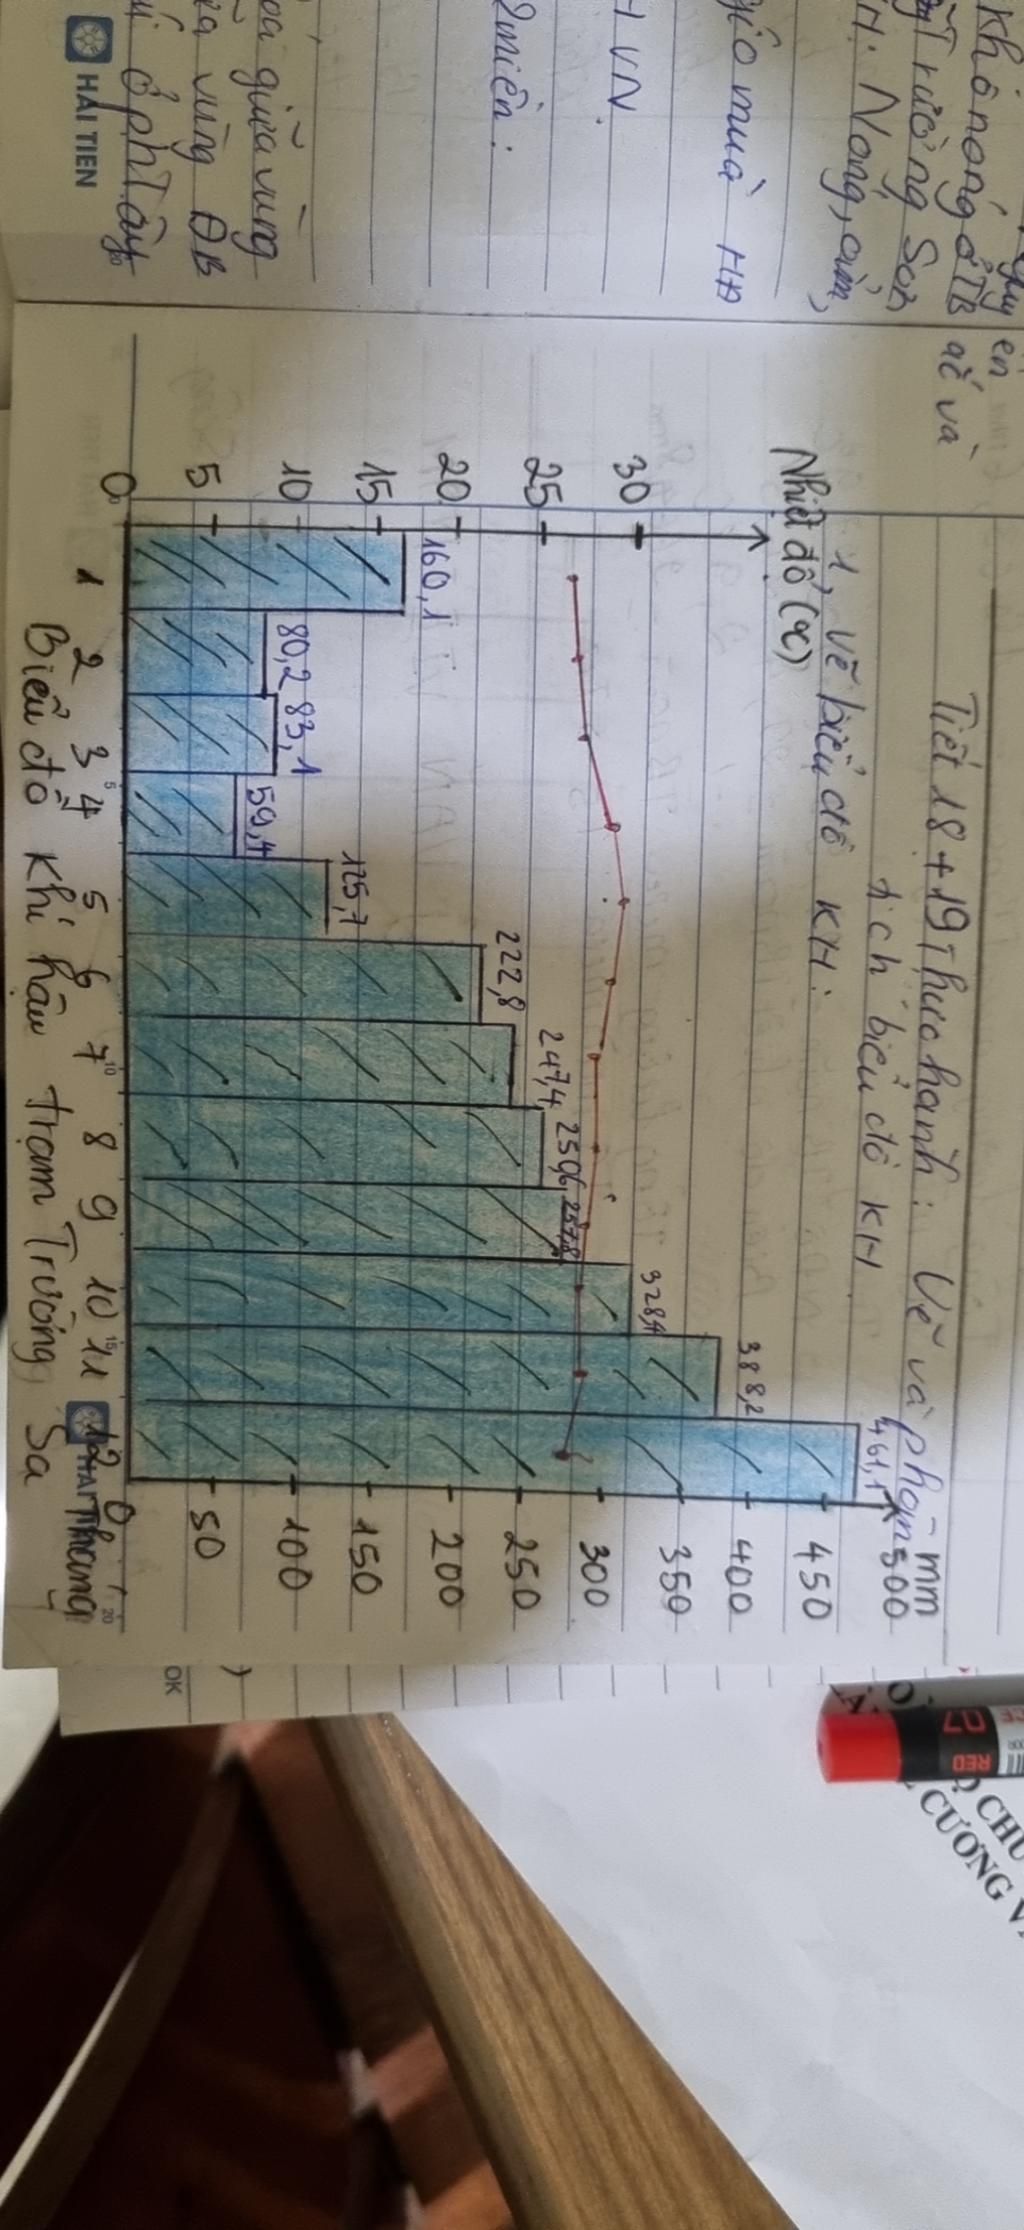 Khô nóng ở TB
Trường Sơn
H: Nóng, ẩm,
gió mùa HĐ
H VN.
2 miền:
giữa vùng
vùng ĐB
ở phT ây
HẢI TIẾN
Tiết 18 + 19 Thực hành: Vẽ và phân
tích biểu đồ KH
1, Vẽ biểu đồ KH:
Nhiệt độ (°C)
mm
30
25
20
15
10
5
0
500
450
400
350
300
250
200
150
100
50
0
160,1
80,2
83,1
59,4
125,7
222,8
247,4
250,6
257,8
328,4
388,2
461,1
1 2 3 4 5 6 7 8 9 10 11 12 Tháng
5 10 15 20
HẢI
Biểu đồ khí hậu trạm Trường Sa
OK
07
RED
CHƯ
CƯƠNG V